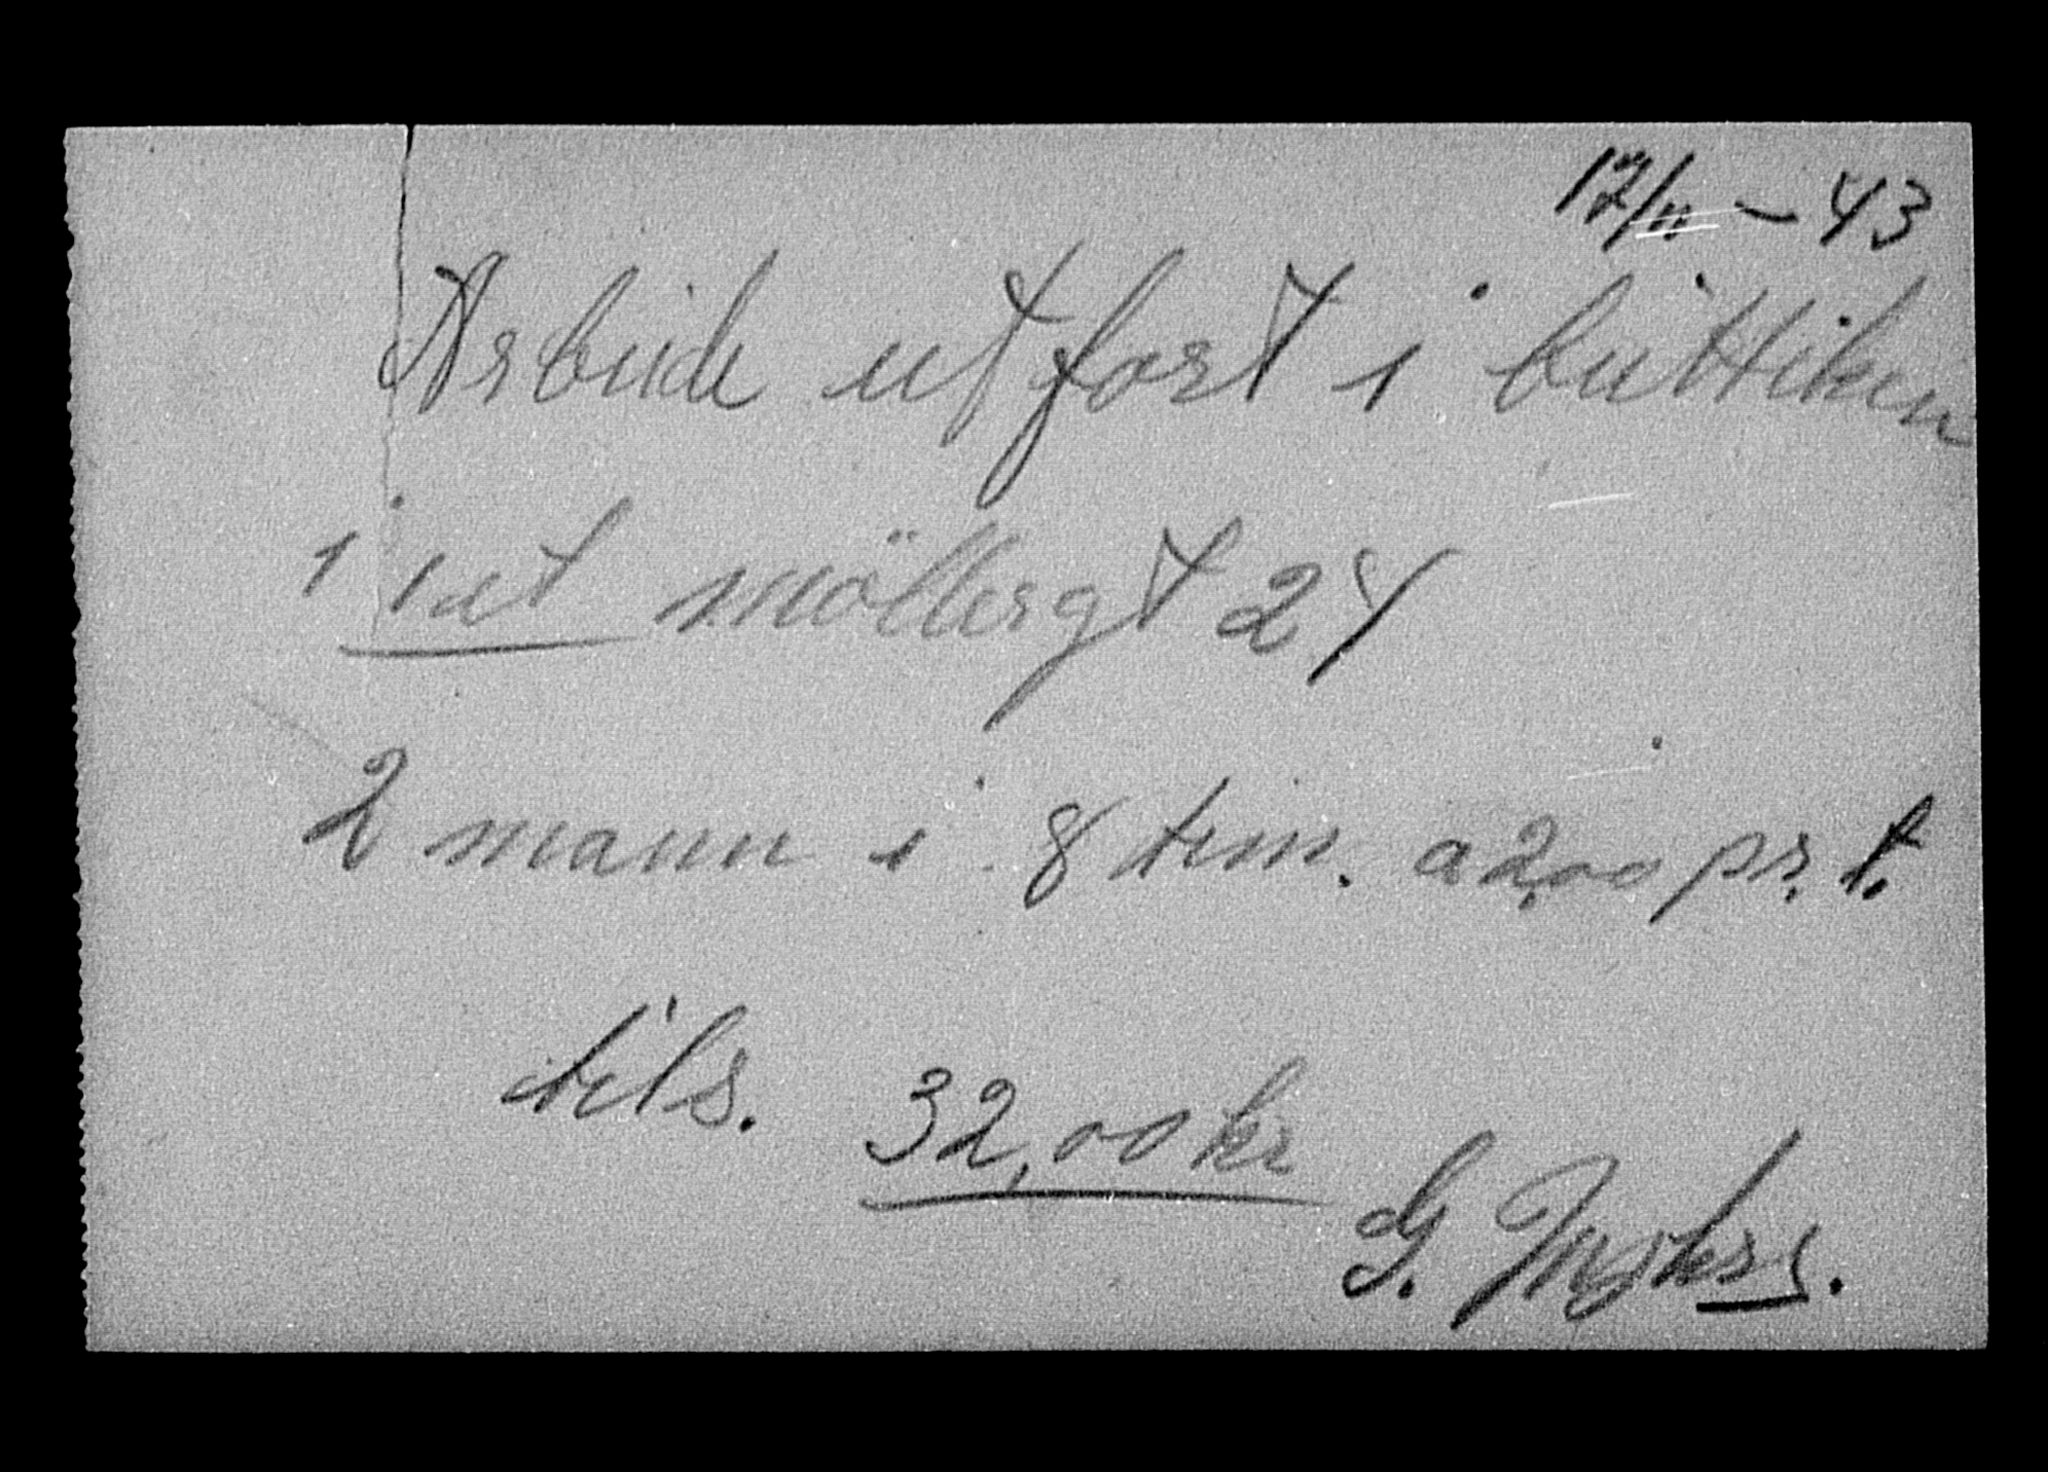 17/11 - 43
Arbeide utfort i buttiken
i 1 et möllergt 24
2 mann i 8 tim. a 2,00 pr. t.
tils. 32,00 kr
G.